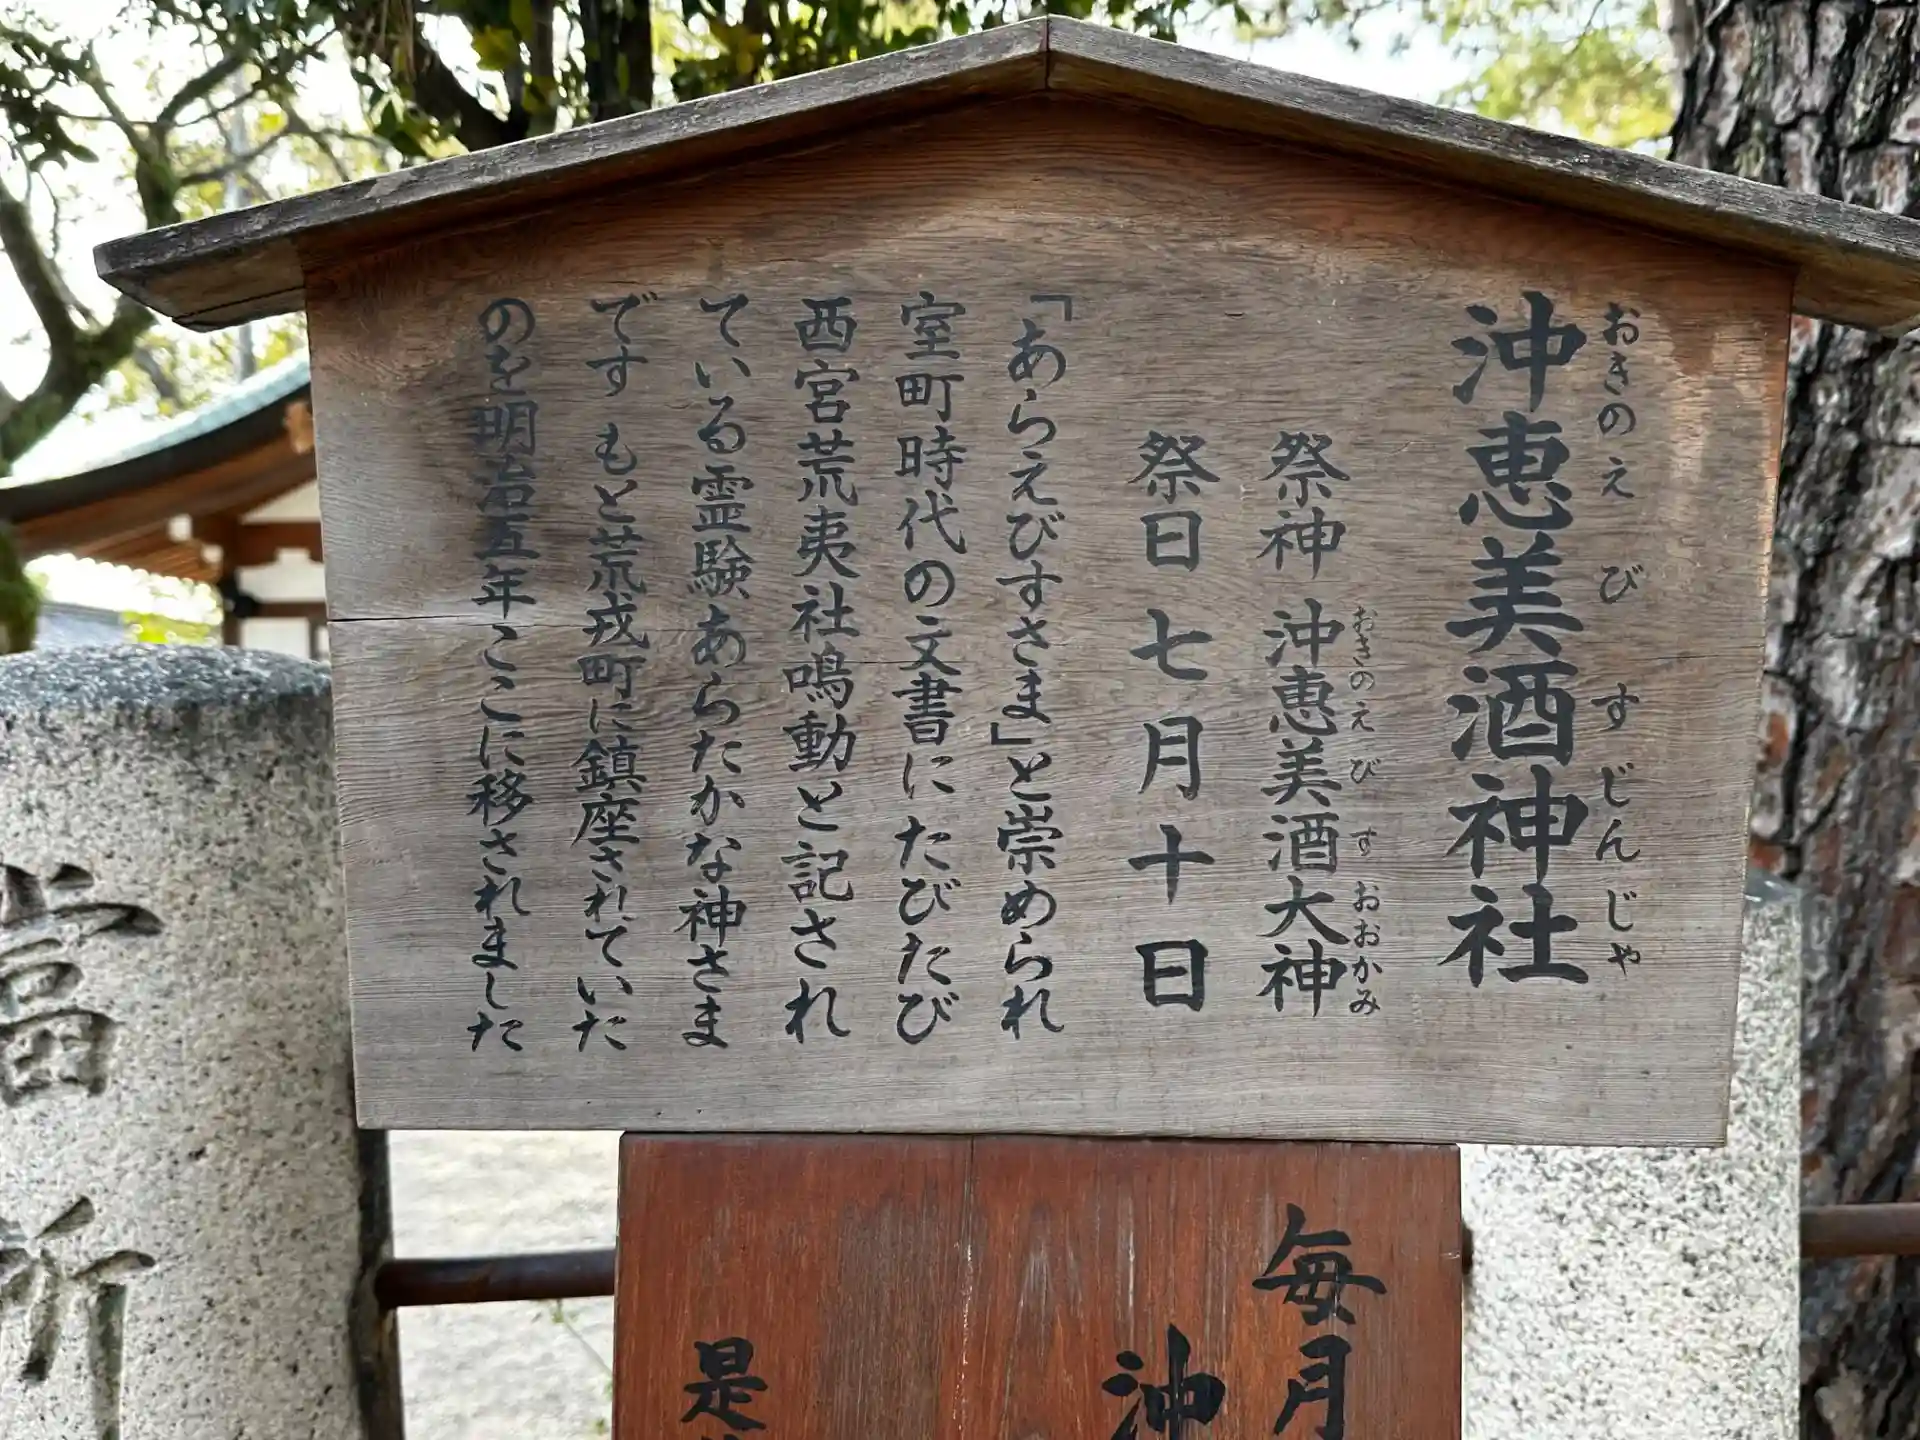 おきのえびすじんじゃ
沖恵美酒神社
おきのえびすおおかみ
祭神 沖恵美酒大神
祭日 七月十日
「あらえびすさま」と崇められ
室町時代の文書にたびたび
西宮荒夷社鳴動と記され
ている霊験あらたかな神さま
です もと荒戎町に鎮座されていた
のを明治五年ここに移されました
毎月
沖
是
當
所